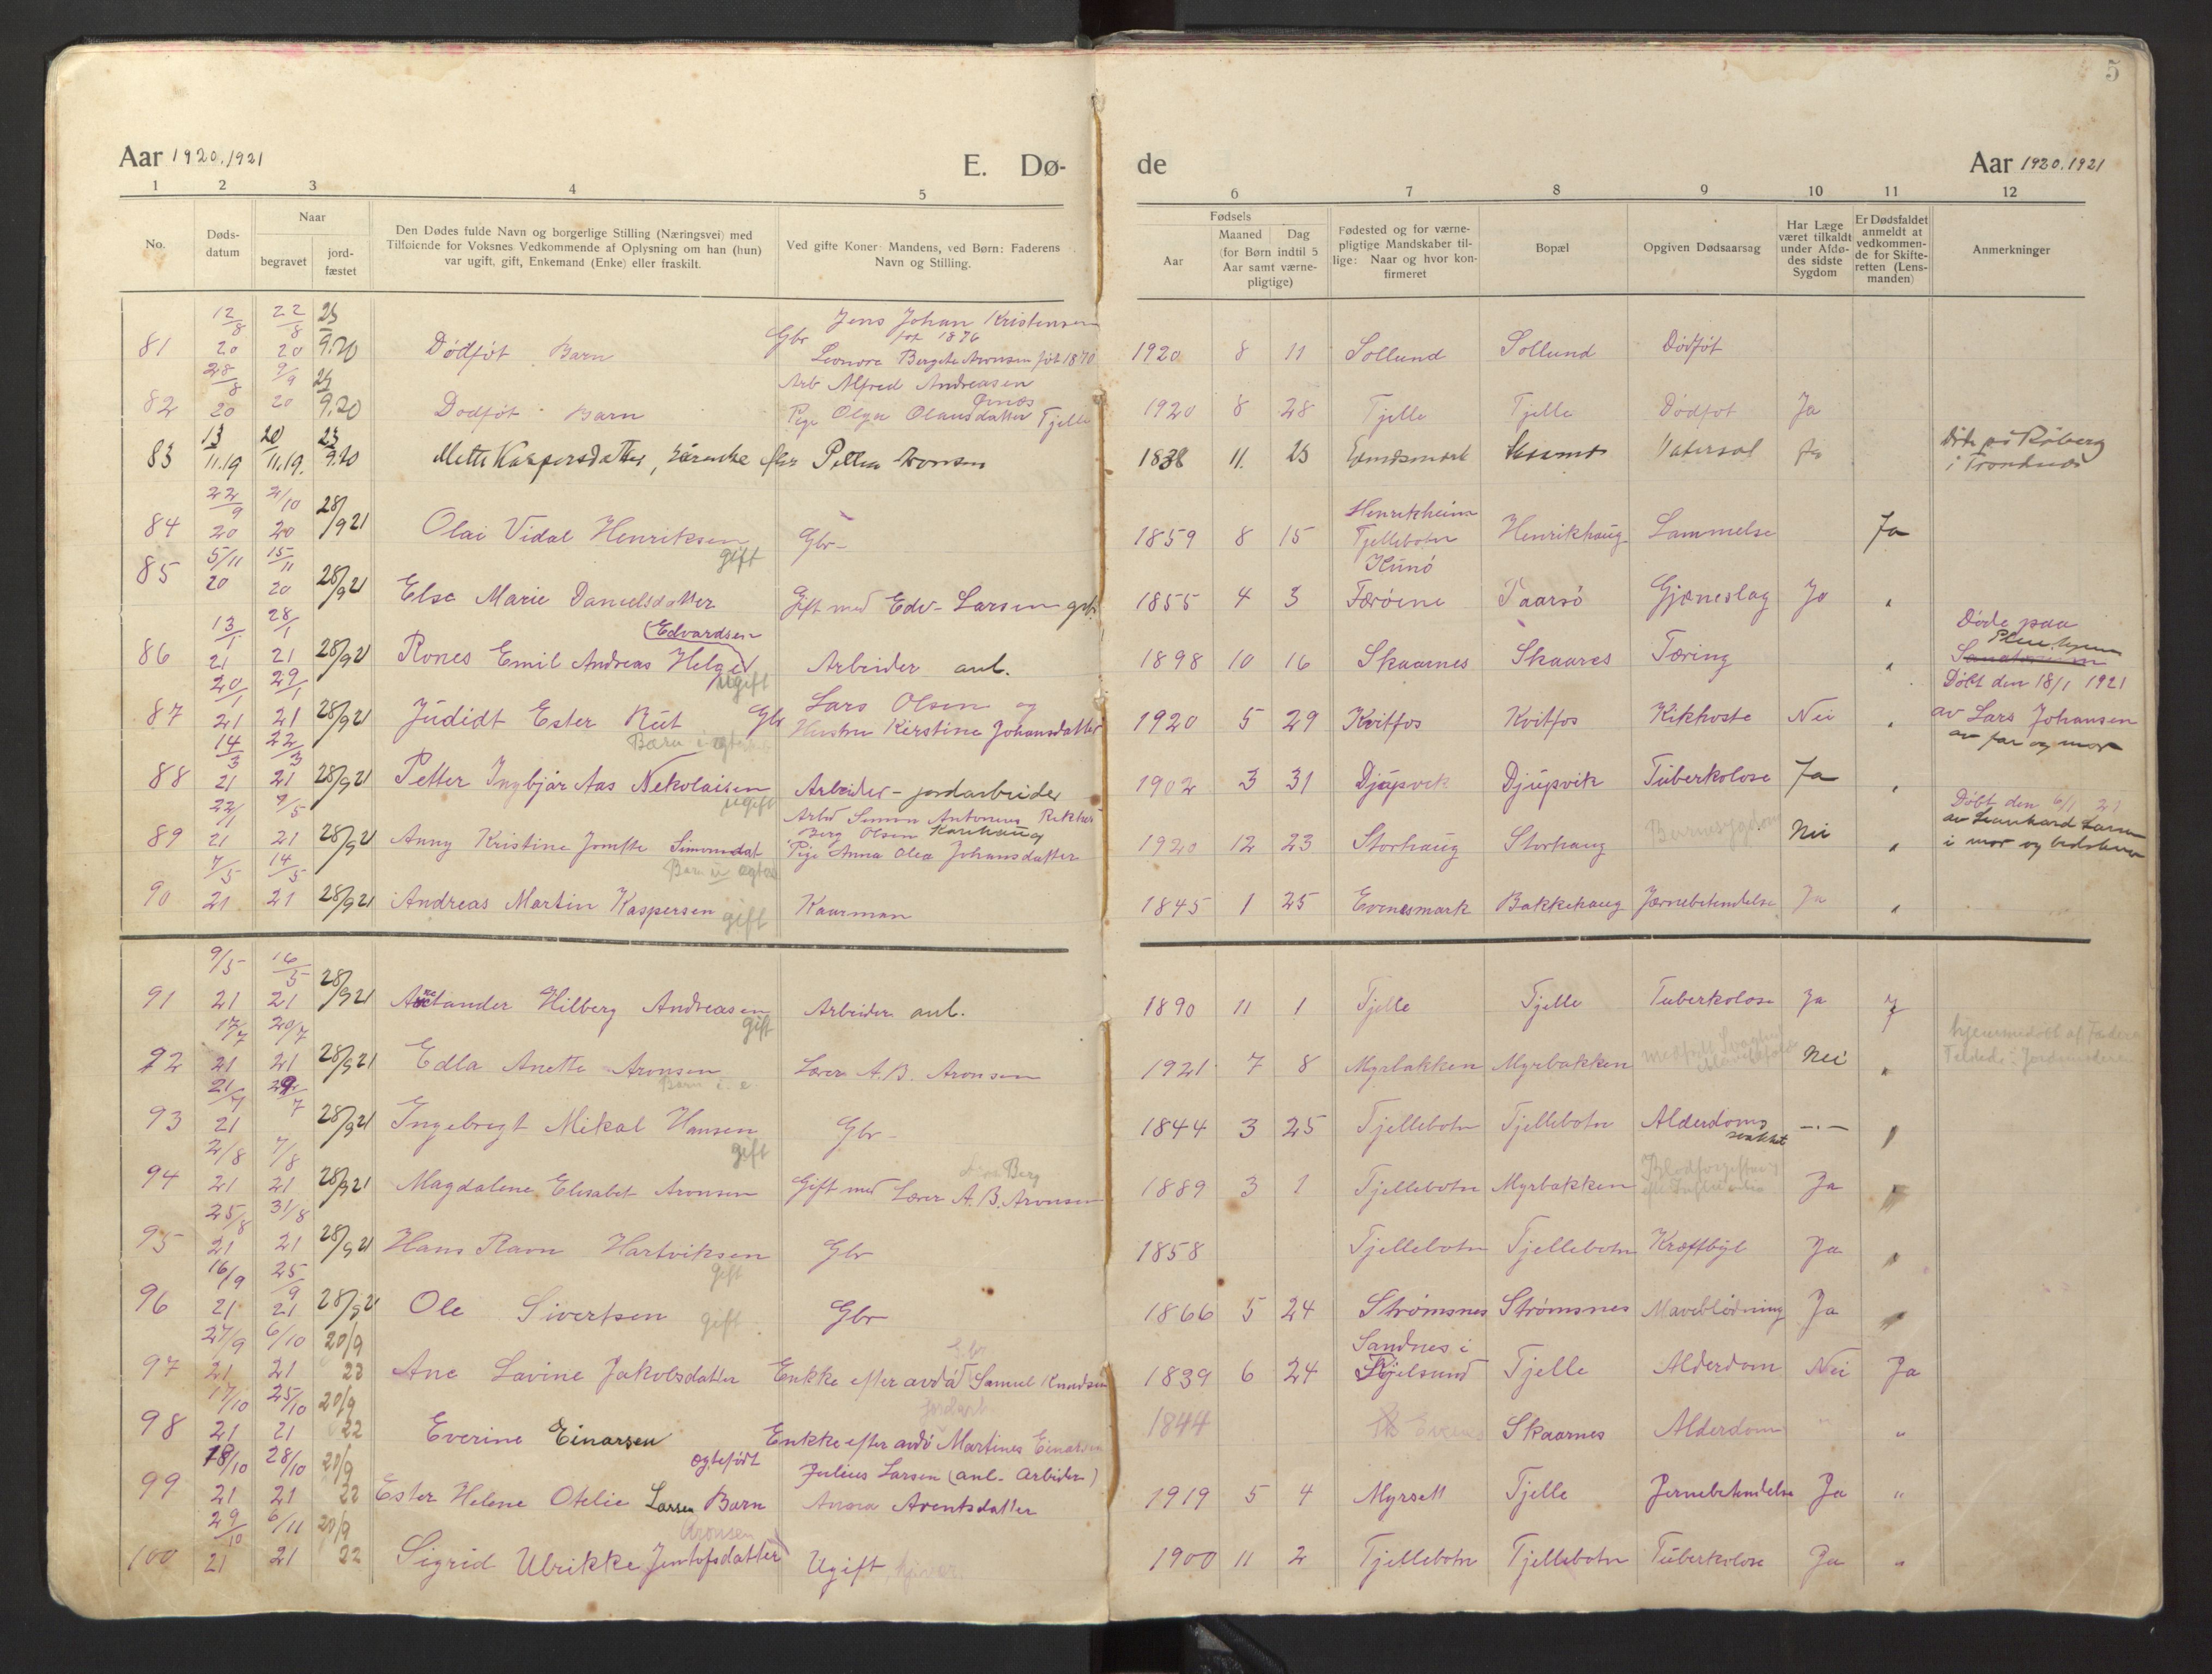 5
Aar 1920.1921 E. Dø- de Aar 1920.1921
1 2 3 4 5 6 7 8 9 10 11 12
No.
Døds-
datum
Naar
begravet
jord-
fæstet
Den Dødes fulde Navn og borgerlige Stilling (Næringsvei) med
Tilføiende for Voksnes Vedkommende af Oplysning om han (hun)
var ugift, gift, Enkemand (Enke) eller fraskilt.
Ved gifte Koner: Mandens, ved Børn: Faderens
Navn og Stilling.
Fødsels
Aar
Maaned Dag
(for Børn indtil 5
Aar samt værne-
pligtige)
Fødested og for værne-
pligtige Mandskaber til-
lige: Naar og hvor kon-
firmeret
Bopæl
Opgiven Dødsaarsag
Har Læge
været tilkaldt
under Afdø-
des sidste
Sygdom
Er Dødsfaldet
anmeldt at
vedkommen-
de for Skifte-
retten (Lens-
manden)
Anmerkninger
12/8 22/8 25 Jens Johan Kristensen
Gbr føt 1876
81 20 20 9.20 Dødføt Barn Leonora Bergete Aronsen føt 1870 1920 8 11 Sollund Sollund Dødføt
28/8 9/9 25 Arb Alfred Andreasen
82 20 20 9.20 Dødføt Barn Pige Olga Olausdatter Tjelle 1920 8 28 Tjelle Tjelle Dødføt Ja
13 20 23
83 11.19 11.19. 9.20 Mette Kaspersdatter, efter 1838 11. 25 Ja
i Trondenes
22/9 2/10 28/9 21 Tjellebotn
84 20 20 Olai Vidal Henriksen gift Gbr- 1859 8 15 Henrikhaug Lammelse Ja
5/11 15/11
85 20 20 28/9 21 Else Marie Danielsdatter Gift med Edv. Larsen gbr. 1855 4 3 Færøene Taarsø Gjæneslag Ja "
13/1 28/1 (Edvardsen Døde paa
86 21 21 28/9 21 Rones Emil Andreas Helge ugift Arbeider anl. 1898 10 16 Skaarnes Skaares Tæring "
20/1 29/1 Lars Olsen og Døbt den 18/1 1921
87 21 21 28/9 21 Judidt Ester Rut Gbr Hustru Kirstine Johansdatter 1920 5 29 Kvitfos Kvitfos Kikhoste Nei " av Lars Johansen
Barn i ægte av far og mor
14/3 22/3
88 21 21 28/9 21 Petter Ingbjør Aas Nekolaisen ugift Arbeider - jordarbeider 1902 3 31 Djupvik Djupvik Tuberkolose Ja "
22/1 9/5 Arbd Simon Antonius Døbt den 6/1 21
Berg Olsen Karihaug
89 21 21 28/9 21 Anny Kristine Jomfte Simonsdat Pige Anna Olea Johansdatter 1920 12 23 Storhaug Storhaug Barnesygdom Nei "
7/5 14/5
90 21 21 28/9 21 Andreas Martin Kaspersen gift Kaarman 1845 1 25 Evenesmark Bakkehaug Jærnebetendelse Ja "
9/5 16/5
91 21 21 28/9 21 Hilberg Andreasen gift Arbeider anl. 1890 11 1 Tjelle Tjelle Tuberkolose Ja
17/7 20/7 hjemmedøbt af Faderen
92 21 21 28/9 21 Edla Anette Aronsen Lærer A.B. Aronsen 1921 7 8 Myrbakken Myrbakken Nei "
Barn i. e.
21/7 29/7
93 21 28/9 21 Ingebregt Mikal Hansen gift Gbr- 1844 3 25 Tjellebotn Tjellebotn Alderdoms svakhet -.- "
2/8 7/8 Berg
94 21 21 28/9 21 Magdalene Elesabet Aronsen Gift med Lærer A.B. Aronsen 1889 3 1 Tjellebotn Myrbakken Ja "
25/8 31/8
95 21 21 28/9 21 Hans Ravn Hartviksen gift Gbr 1858 Tjellebotn Tjellebotn Kræftbyl Ja "
16/9 25/9
96 21 21 28/9 21 Ole Sivertsen gift. Gbr 1866 5 24 Strømsnes Strømsnes Maveblødning Ja "
27/9 6/10 20/9 Gbr Sandnes i
97 21 21 22 Ane Lovine Jakobsdatter Enkke efter avdød Samuel Knudsen 1839 6 24 Tjelsund Tjelle Alderdom Nei Ja
17/10 25/10 20/9
98 21 21 22 Everine Einarsen Enkke efter avdø Martines Einarsen 1844 Skaarnes Alderdom " "
18/10 28/10 20/9 ægtefødt Julius Larsen (anl. Arbider)
99 21 21 22 Ester Helene Otelie Larsen Barn Aurora Arentsdatter 1919 5 4 Myrsett Tjelle Jernebetendelse Ja "
29/10 6/11 20/9 Aronsen
100 21 21 22 Sigrid Ulrikke Jentofsdatter Ugift, 1900 11 2 Tjellebotn Tjellebotn Tuberkolose Ja "